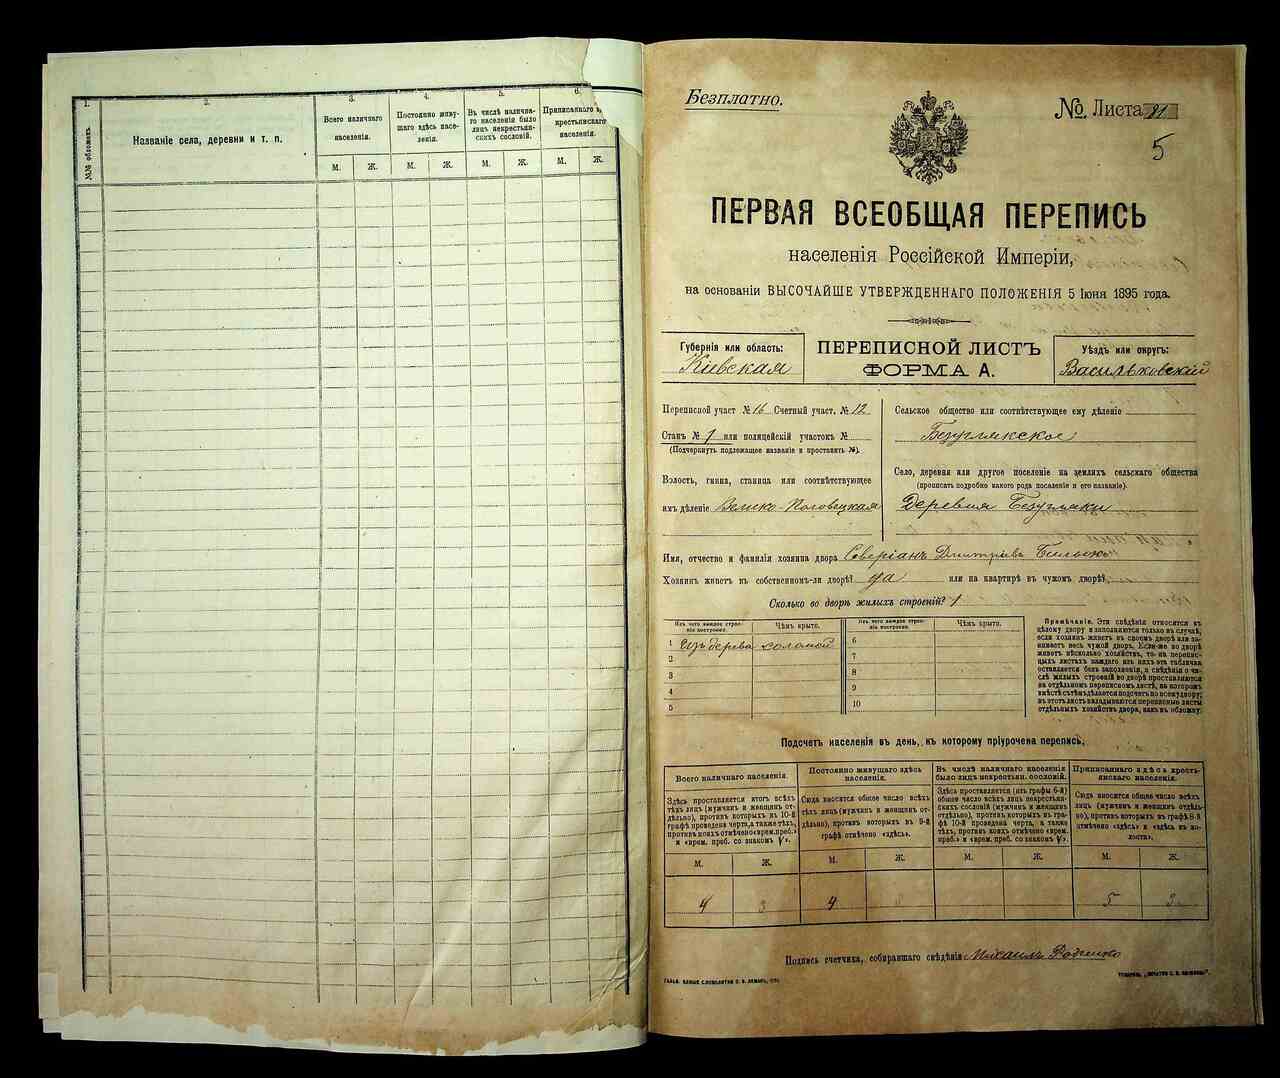 1.
2.
3.
4.
5.
6.
№№ обложекъ.
Названіе села, деревни и т. п.
Всего наличнаго
населенія.
Постоянно живу-
щаго здѣсь насе-
ленія.
Въ числѣ налична-
го населенія было
лицъ некрестьян-
скихъ сословій.
Приписаннаго
крестьянскаго
населенія.
М. Ж. М. Ж. М. Ж. М. Ж.
Безплатно.
№. Листа 81
5
ПЕРВАЯ ВСЕОБЩАЯ ПЕРЕПИСЬ
населенія Россійской Имперіи,
на основаніи ВЫСОЧАЙШЕ УТВЕРЖДЕННАГО ПОЛОЖЕНІЯ 5 Іюня 1895 года.
Губернія или область:
Кіевская
ПЕРЕПИСНОЙ ЛИСТЪ
ФОРМА А.
Уѣздъ или округъ:
Васильковскій
Переписной участ № 16 Счетный участ. № 12
Станъ № 1 или полицейскій участокъ №
(Подчеркнуть подлежащее названіе и проставить №).
Волость, гмина, станица или соотвѣтствующее
имъ дѣленіе Велико-Половецкая
Сельское общество или соотвѣтствующее ему дѣленіе
Безуглякское
Село, деревня или другое поселеніе на земляхъ сельскаго общества
(прописать подробно какого рода поселеніе и его названіе).
Деревня Безугляки
Имя, отчество и фамилія хозяина двора Северіанъ Дмитріевъ
Хозяинъ живетъ въ собственномъ-ли дворѣ? да или на квартирѣ въ чужомъ дворѣ?
Сколько во дворѣ жилыхъ строеній? 1
Изъ чего каждое строе-
ніе построено.
Чѣмъ крыто.
Изъ чего каждое строе-
ніе построено.
Чѣмъ крыто.
1 Изъ дерева соломой
2
3
4
5
6
7
8
9
10
Примѣчаніе. Эти свѣдѣнія относятся къ
цѣлому двору и заполняются только въ случаѣ,
если хозяинъ живетъ въ своемъ дворѣ или за-
нимаетъ весь чужой дворъ. Если-же во дворѣ
живетъ нѣсколько хозяйствъ, то на перепис-
ныхъ листахъ каждаго изъ нихъ эта табличка
оставляется безъ заполненія, а свѣдѣнія о чи-
слѣ жилыхъ строеній во дворѣ проставляются
на отдѣльномъ переписномъ листѣ, на которомъ
вмѣстѣ съ тѣмъ дѣлается подсчетъ по всему двору;
въ этотъ листъ вкладываются переписные листы
отдѣльныхъ хозяйствъ двора, какъ въ обложку.
Подсчетъ населенія въ день, къ которому пріурочена перепись.
Всего наличнаго населенія.
Постоянно живущаго здѣсь
населенія.
Въ числѣ наличнаго населенія
было лицъ некрестьян. сословій.
Приписаннаго здѣсь кресть-
янскаго населенія.
Здѣсь проставляется итогъ всѣхъ
тѣхъ лицъ (мужчинъ и женщинъ от-
дѣльно), противъ которыхъ въ 10-й
графѣ проведена черта, а также тѣхъ,
противъ коихъ отмѣчено «врем. преб.»
и «врем. преб. со знакомъ V».
Сюда вносится общее число всѣхъ
тѣхъ лицъ (мужчинъ и женщинъ от-
дѣльно), противъ которыхъ въ 9-й
графѣ отмѣчено «здѣсь».
Здѣсь проставляется (изъ графы 6-й)
общее число всѣхъ лицъ некрестьян-
скихъ сословій (мужчинъ и женщинъ
отдѣльно), противъ которыхъ въ
граф. 10-й проведена черта, а также
тѣхъ, противъ коихъ отмѣчено «врем.
преб.» и «врем. преб. со знакомъ V».
Сюда вносится общее число всѣхъ
лицъ (мужчинъ и женщинъ отдѣль-
но), противъ которыхъ въ графѣ 8-й
отмѣчено «здѣсь» и «здѣсь въ во-
лости».
М. Ж. М. Ж. М. Ж. М. Ж.
4 3 4 3 5 3
Подпись счетчика, собиравшаго свѣдѣнія Михаилъ